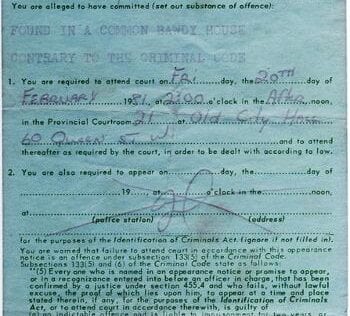 You are alleged to have committed (set out substance of offence):
FOUND IN A COMMON BAWDY HOUSE
CONTRARY TO THE CRIMINAL CODE
1. You are required to attend court on FRI day, the 20TH day of
FEBRUARY 1981, at 2:00 o'clock in the AFTER noon,
in the Provincial Courtroom 21 at Old City Hall
60 Queen St W and to attend
thereafter as required by the court, in order to be dealt with according to law.
2. You are also required to appear on day, the day of
19 at o'clock in the noon,
at
(police station) (address)
for the purposes of the Identification of Criminals Act. (ignore if not filled in).
You are warned that failure to attend court in accordance with this appearance
notice is an offence under subsection 133(5) of the Criminal Code.
Subsections 133(5) and (6) of the Criminal Code state as follows:
"(5) Every one who is named in an appearance notice or promise to appear,
or in a recognizance entered into before an officer in charge, that has been
confirmed by a justice under section 455.4 and who fails, without lawful
excuse, the proof of which lies upon him, to appear at a time and place
stated therein, if any, for the purposes of the Identification of Criminals
Act, or to attend court in accordance therewith, is guilty of